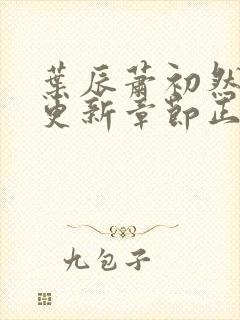 葉辰蕭初然
更新章節正
九包子